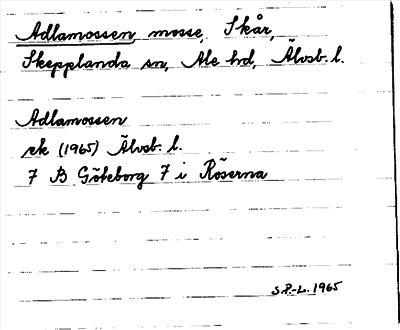 Adlamossen mosse, Skår,
Skepplanda sn, Ale hd, Älvsb. l.
Adlamossen
ek (1965) Älvsb. l.
7 B Göteborg 7 i Röserna
S.P.-L. 1965